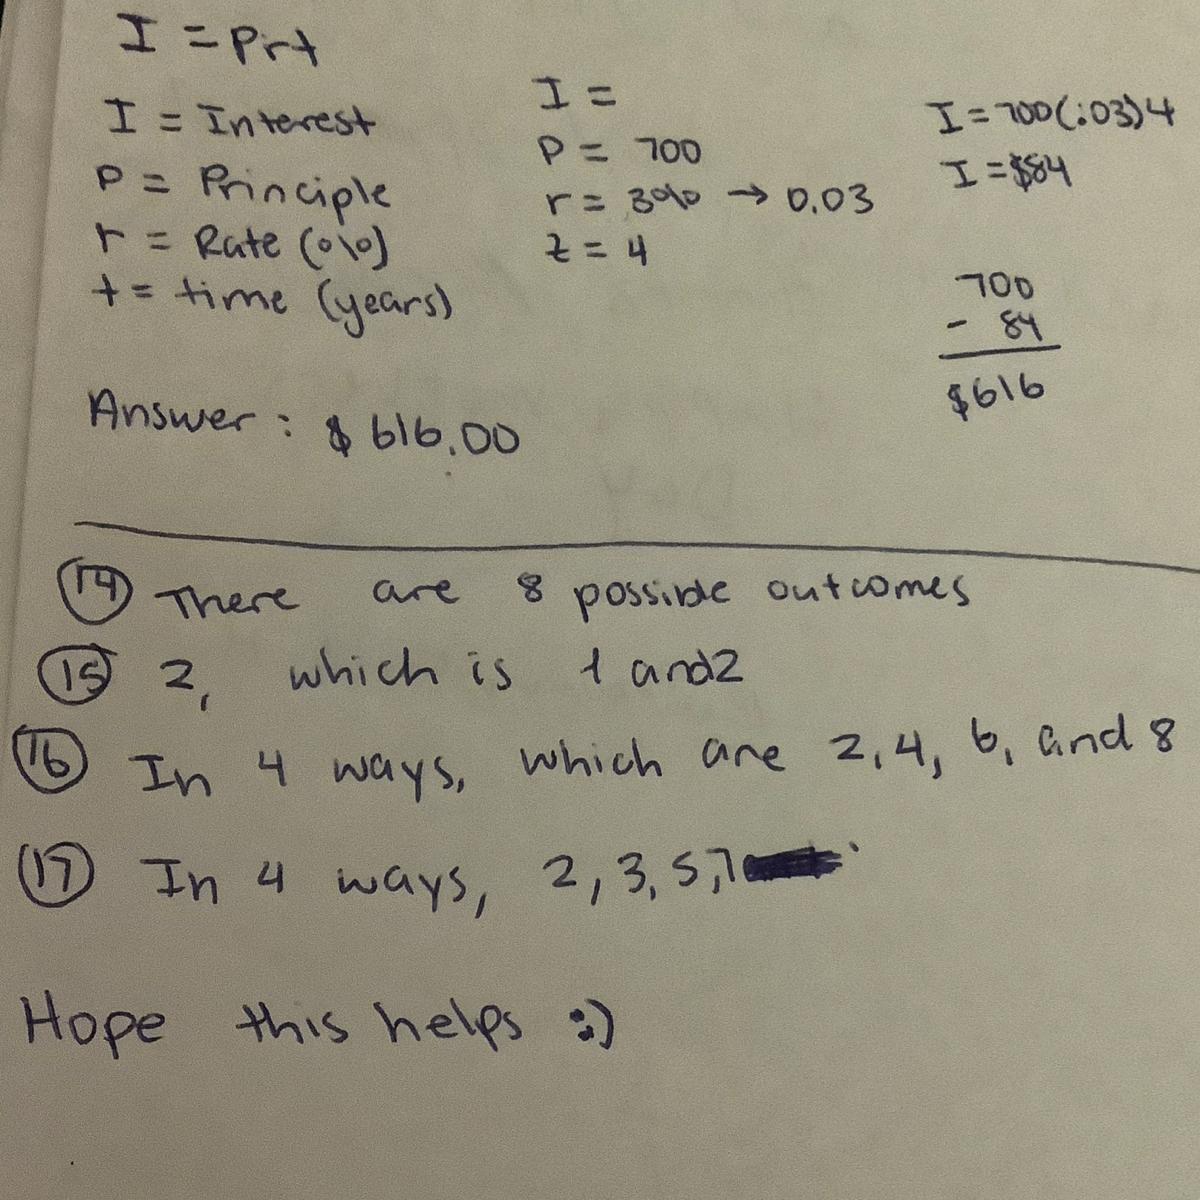 I = Prt
I = Interest
P = Principle
r = Rate (%)
t = time (years)
I =
P = 700
r = 3% → 0.03
t = 4
I = 700(.03)4
I = $84
700
- 84
$616
Answer: $616.00
14 There are 8 possible outcomes
15 2, which is 1 and 2
16 In 4 ways, which are 2, 4, 6, and 8
17 In 4 ways, 2, 3, 5, 7
Hope this helps :)